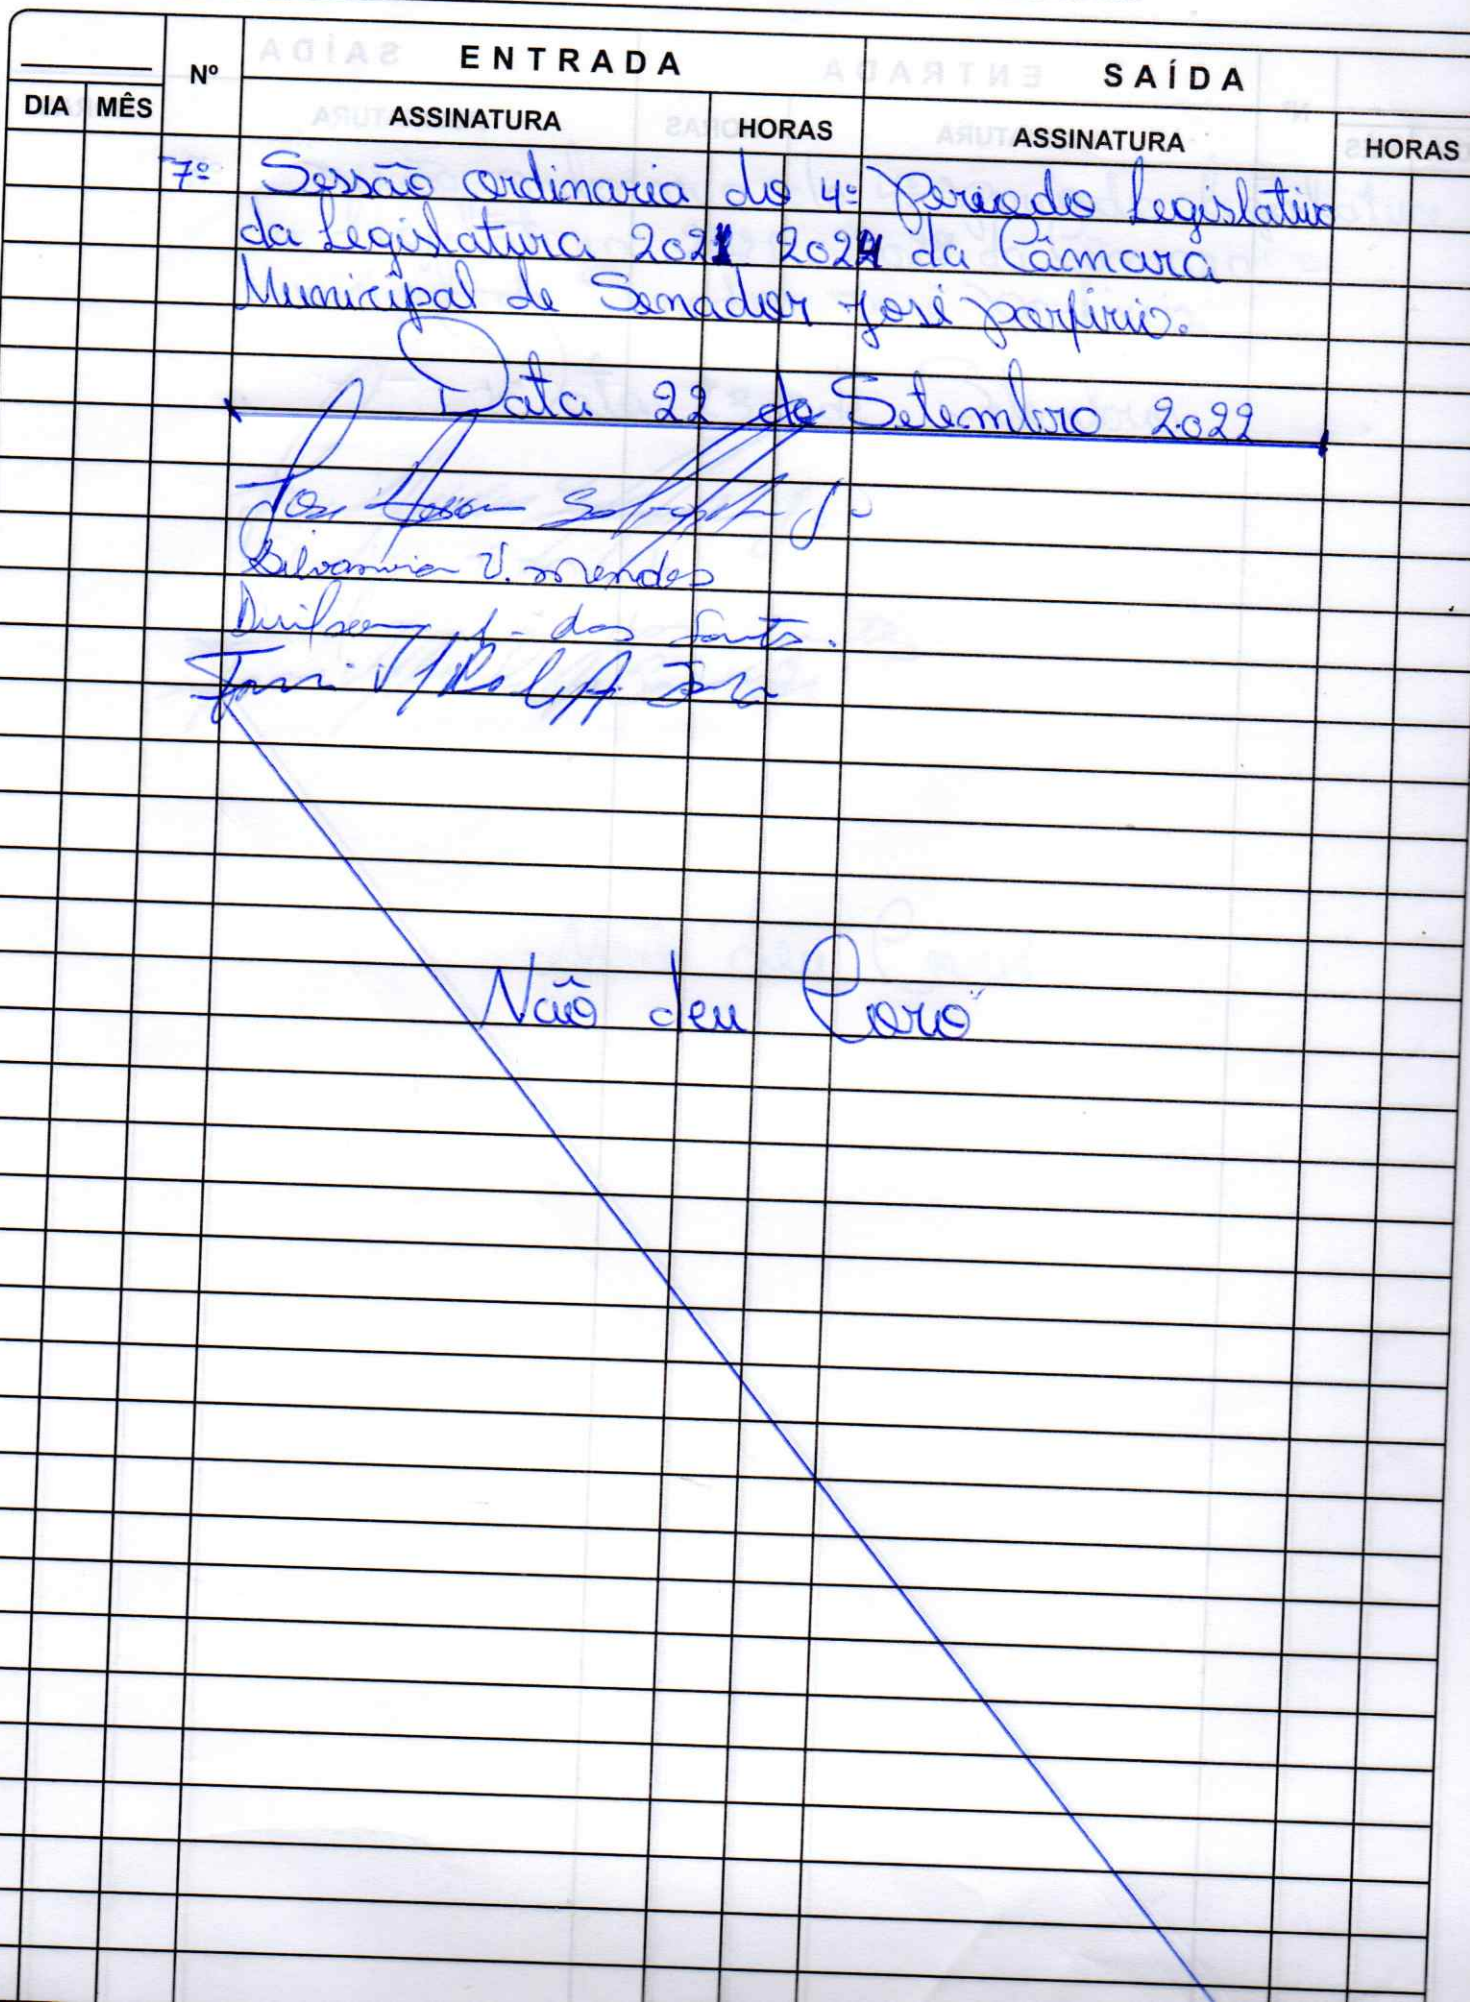 ENTRADA SAÍDA
DIA MÊS Nº ASSINATURA HORAS ASSINATURA HORAS
7º Sessão ordinaria do 4º Periodo Legislativo
da Legislatura 2021 2024 da Câmara
Municipal de Senador José porfirio.
Data 22 de Setembro 2022
Jose
Silvania V. mendes
dos Santos.
Não deu Coro